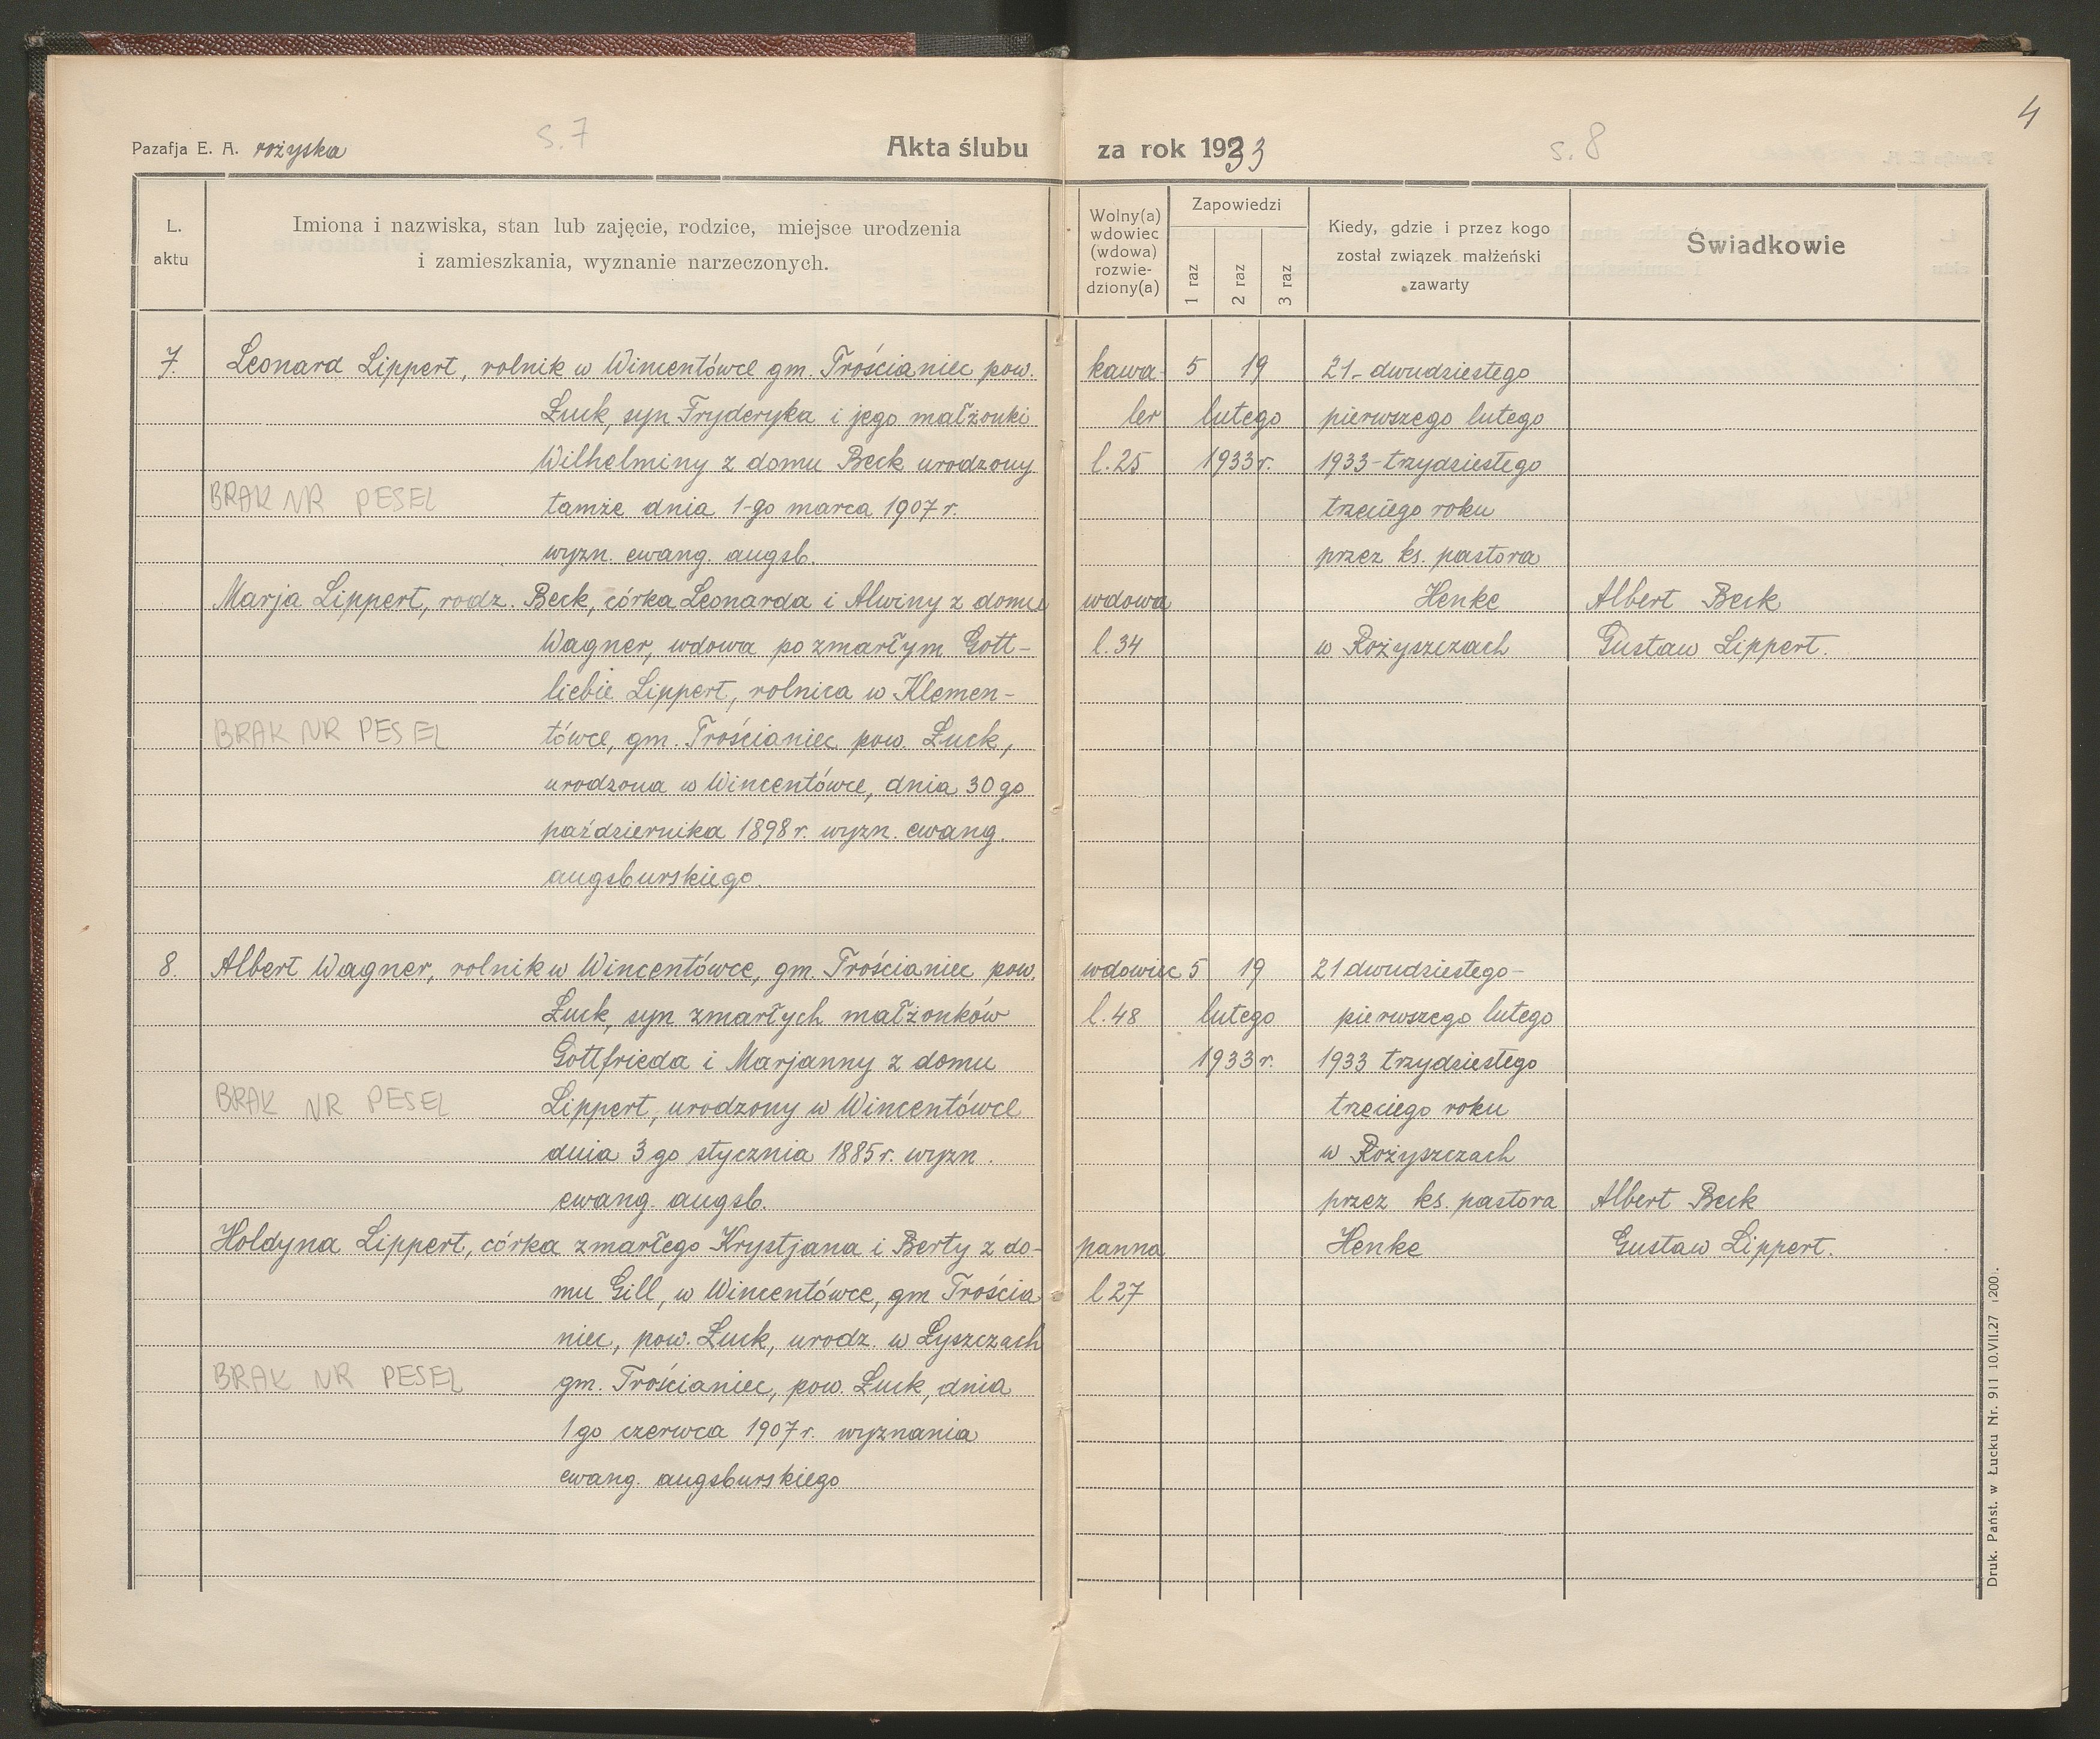 4
Pazafja E. A. rożyska
s. 7
Akta ślubu
za rok 1933
s. 8
L. aktu
Imiona i nazwiska, stan lub zajęcie, rodzice, miejsce urodzenia
i zamieszkania, wyznanie narzeczonych.
Wolny(a)
wdowiec
(wdowa)
rozwie-
dziony(a)
Zapowiedzi
1 raz
2 raz
3 raz
Kiedy, gdzie i przez kogo
został związek małżeński
zawarty
Świadkowie
7.
Leonard Lippert, rolnik w Wincentówce gm. Trościaniec pow.
Łuck, syn Fryderyka i jego małżonki
Wilhelminy z domu Beck urodzony
BRAK NR PESEL
tamże dnia 1-go marca 1907 r.
wyzn. ewang. augsb.
kawa-
ler
l. 25
5 19
lutego
1933 r.
21- dwudziestego
pierwszego lutego
1933- trzydziestego
trzeciego roku
przez ks. pastora
Henke
w Rożyszczach
Marja Lippert, rodz. Beck, córka Leonarda i Alwiny z domu
Wagner, wdowa po zmarłym Gott-
liebie Lippert, rolnica w Klemen-
BRAK NR PESEL
tówce, gm. Trościaniec pow. Łuck,
urodzona w Wincentówce, dnia 30 go
października 1898 r. wyzn. ewang.
augsburskiego.
wdowa
l. 34
Albert Beck
Gustaw Lippert.
8.
Albert Wagner, rolnik w Wincentówce, gm. Trościaniec pow.
Łuck, syn zmarłych małżonków
Gottfrieda i Marjanny z domu
BRAK NR PESEL
Lippert, urodzony w Wincentówce
dnia 3 go stycznia 1885 r. wyzn.
ewang. augsb.
wdowiec
l. 48
5 19
lutego
1933 r.
21 dwudziestego-
pierwszego lutego
1933 trzydziestego
trzeciego roku
w Rożyszczach
przez ks. pastora
Henke
Albert Beck
Gustaw Lippert.
Holdyna Lippert, córka zmarłego Krystjana i Berty z do-
mu Gill, w Wincentówce, gm Trościa
niec, pow. Łuck, urodz. w Łyszczach
BRAK NR PESEL
gm. Trościaniec, pow. Łuck, dnia
1 go czerwca 1907 r. wyznania
ewang. augsburskiego
panna
l 27
Druk. Państ. w Łucku Nr. 911 10.VII.27 1200.